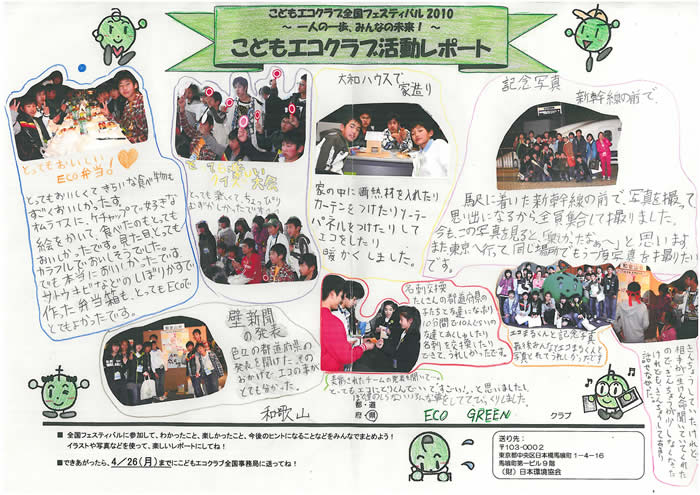 こどもエコクラブ全国フェスティバル2010
～ 一人の一歩、みんなの未来！ ～
こどもエコクラブ活動レポート
とってもおいしい
ECO弁当！
とってもおいしくてきらいな食べ物も
すごくおいしかったす。
オムライスに、ケチャップで好きな
絵をかいて、食べたのもとっても
おいしかったです。見た目もとっても
カラフルでおいしそうでした。
でも本当においしかったです。
サトウキビなどのしぼりかすで
作った弁当箱もとってもECOで
とてもよかったです。
とっても楽しい
クイズ大会
とっても楽しくて、ちょっぴり
むずかしかったです
大和ハウスで
家造り
家の中に断熱材を入れたり
カーテンをつけたりソーラー
パネルをつけたりして
エコをしたり
暖かくしました。
記念写真
新幹線の前で、
駅に着いた新幹線の前で、写真を撮って
思い出になるから、全員集合して撮りました。
今も、この写真を見ると「楽しかったなぁ～」と思います
また東京へ行って、同じ場所でもう一度写真を撮りたい
です。
壁新聞
の発表
色々の都道府県の
発表を聞けた。その
おかげで、エコの事が
とても分かった。
名刺交換
たくさんの都道府県の
子たちと友達になれた
10分間で10人ぐらいの
友達とあくしゅしたり
名刺も交換したり
できて、うれしかったです。
エコまるくんと記念写真
最後みんなでエコまるくんと
写真とれてうれしかったです
表彰されたチームの発表を聞いて…。
とってもエコにとりくんでいて「すごい！」と思いました。
和歌山
都・道
府・県
ECO GREEN
クラブ
■ 全国フェスティバルに参加して、わかったこと、楽しかったこと、今後のヒントになることなどをみんなでまとめよう！
イラストや写真などを使って、楽しいレポートにしてね！
■できあがったら、4／26（月）までにこどもエコクラブ全国事務局に送ってね！
送り先：
〒103-0002
東京都中央区日本橋馬喰町1-4-16
馬喰町第一ビル9階
（財）日本環境協会